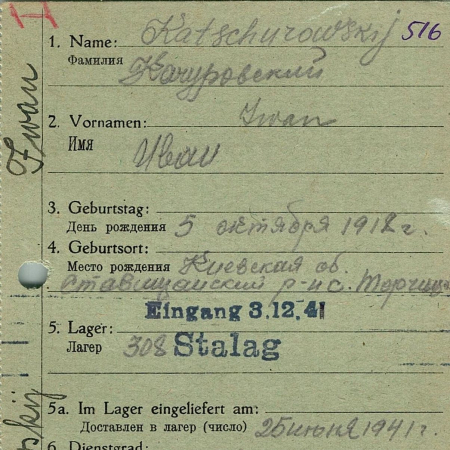 516
1. Name: Katschurowskij
Фамилия Качуровский
Iwan
2. Vornamen: Iwan
Имя Иван
3. Geburtstag:
День рождения 5 октября 1918 г.
4. Geburtsort:
Место рождения Киевская об.
Ставищанский р-н с.
Eingang 3.12.41
5. Lager:
Лагер 308 Stalag
5a. Im Lager eingeliefert am:
Доставлен в лагер (число) 25 июня 1941 г.
6. Dienstgrad: